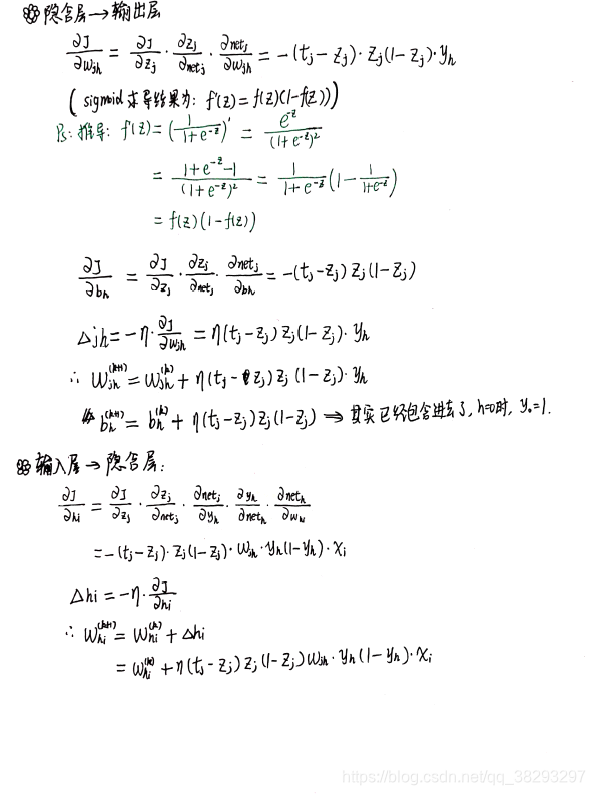 隐含层→输出层
∂J/∂w_jh = ∂J/∂z_j · ∂z_j/∂net_j · ∂net_j/∂w_jh = -(t_j - z_j) · z_j(1-z_j) · y_h
( sigmoid 求导结果为: f'(z) = f(z)(1-f(z)) )
Ps: 推导: f'(z) = (1/(1+e^{-z}))' = e^{z}/(1+e^{-z})^2
= (1+e^{-z}-1)/(1+e^{-z})^2 = 1/(1+e^{-z}) (1 - 1/(1+e^{-z}))
= f(z)(1-f(z))
∂J/∂b_h = ∂J/∂z_j · ∂z_j/∂net_j · ∂net_j/∂b_h = -(t_j - z_j) z_j(1-z_j)
Δjh = -η · ∂J/∂w_jh = η(t_j - z_j) z_j(1-z_j) · y_h
∴ w_jh^{(k+1)} = w_jh^{(k)} + η(t_j - z_j) z_j (1-z_j) · y_h
b_h^{(k+1)} = b_h^{(k)} + η(t_j - z_j) z_j(1-z_j) ⇒ 其实已经包含进去了, h=0时, y_0=1.
输入层→隐含层:
∂J/∂hi = ∂J/∂z_j · ∂z_j/∂net_j · ∂net_j/∂y_h · ∂y_h/∂net_h · ∂net_h/∂w_hi
= -(t_j - z_j) · z_j(1-z_j) · w_jh · y_h(1-y_h) · x_i
Δhi = -η · ∂J/∂hi
∴ w_hi^{(k+1)} = w_hi^{(k)} + Δhi
= w_hi^{(k)} + η(t_j - z_j) z_j(1-z_j) w_jh · y_h(1-y_h) · x_i
https://blog.csdn.net/qq_38293297